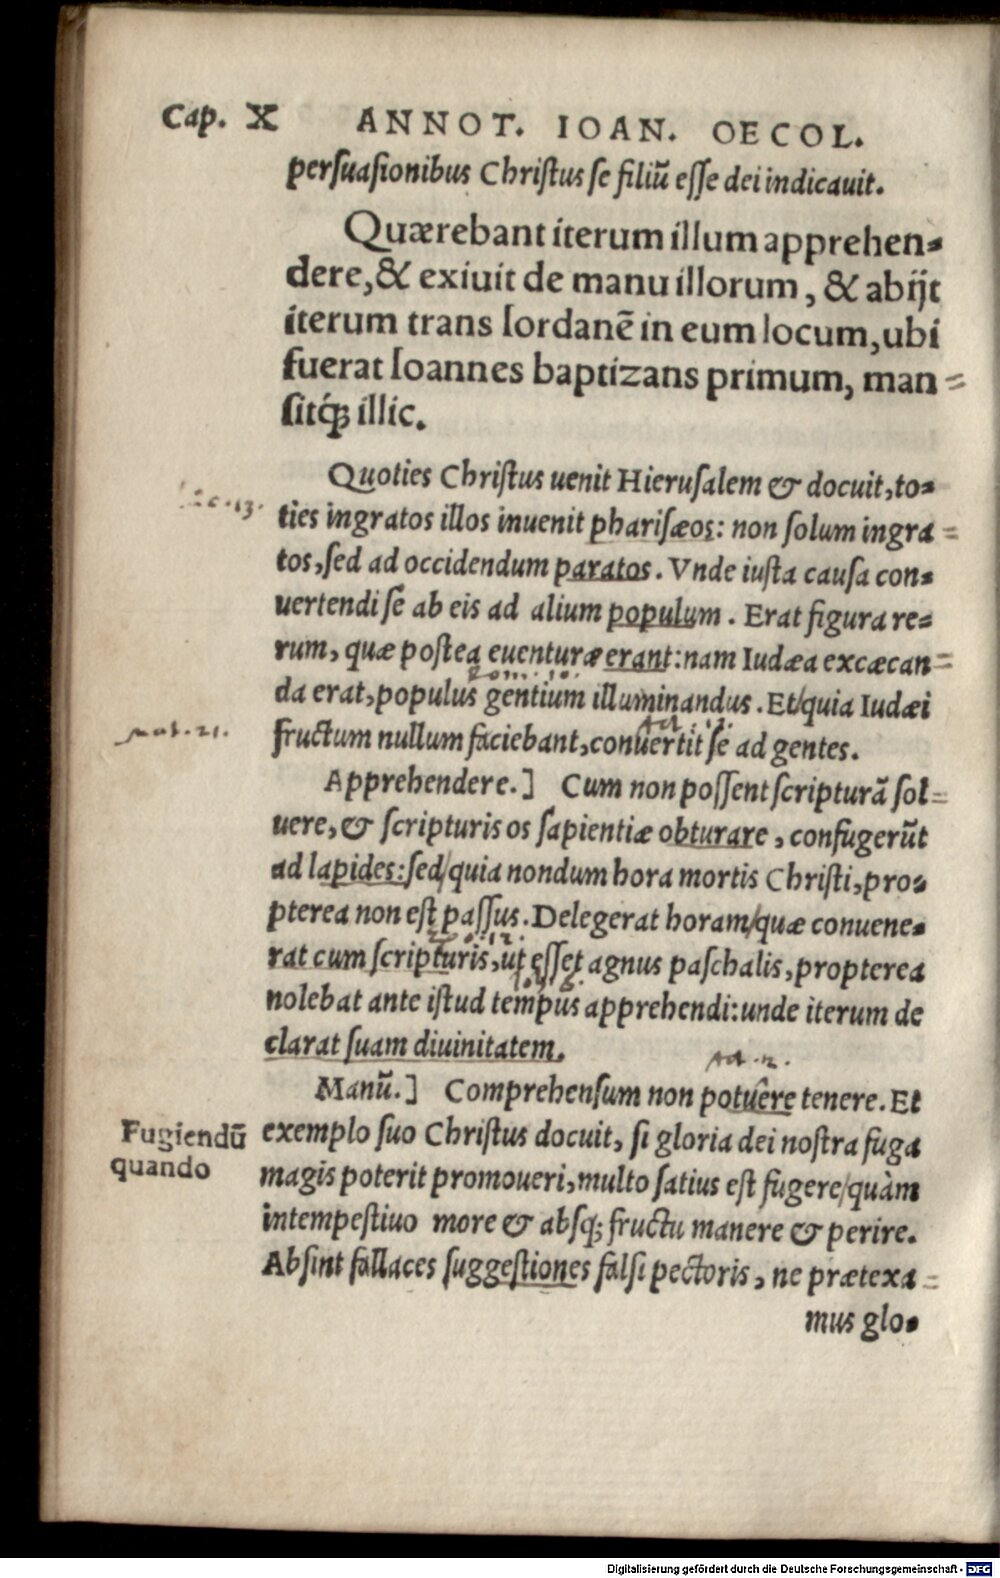 Cap. X ANNOT. IOAN. OECOL.
persuasionibus Christus se filiū esse dei indicauit.
Quærebant iterum illum apprehen-
dere, & exiuit de manu illorum, & abijt
iterum trans Iordanē in eum locum, ubi
fuerat Ioannes baptizans primum, man=
sitq́ꝫ illic.
Quoties Christus uenit Hierusalem & docuit, to-
ties ingratos illos inuenit pharisæos: non solum ingra=
tos, sed ad occidendum paratos. Vnde iusta causa con-
uertendi se ab eis ad alium populum. Erat figura re-
rum, quæ postea euenturæ erant: nam Iudæa excæcan=
Rom. 10.
da erat, populus gentium illuminandus. Et/quia Iudæi
mat. 21.
fructum nullum faciebant, conuertit se ad gentes.
Apprehendere.] Cum non possent scripturā sol=
uere, & scripturis os sapientiæ obturare, confugerūt
ad lapides: sed/quia nondum hora mortis Christi, pro-
pterea non est passus. Delegerat horam/quæ conuene-
rat cum scripturis, ut esset agnus paschalis, propterea
nolebat ante istud tempus apprehendi: unde iterum de
clarat suam diuinitatem.
Manū.] Comprehensum non potuêre tenere. Et
Fugiendū
quando
exemplo suo Christus docuit, si gloria dei nostra fuga
magis poterit promoueri, multo satius est fugere/quàm
intempestiuo more & absqꝫ fructu manere & perire.
Absint fallaces suggestiones falsi pectoris, ne prætexa=
mus glo-
Digitalisierung gefördert durch die Deutsche Forschungsgemeinschaft - DFG